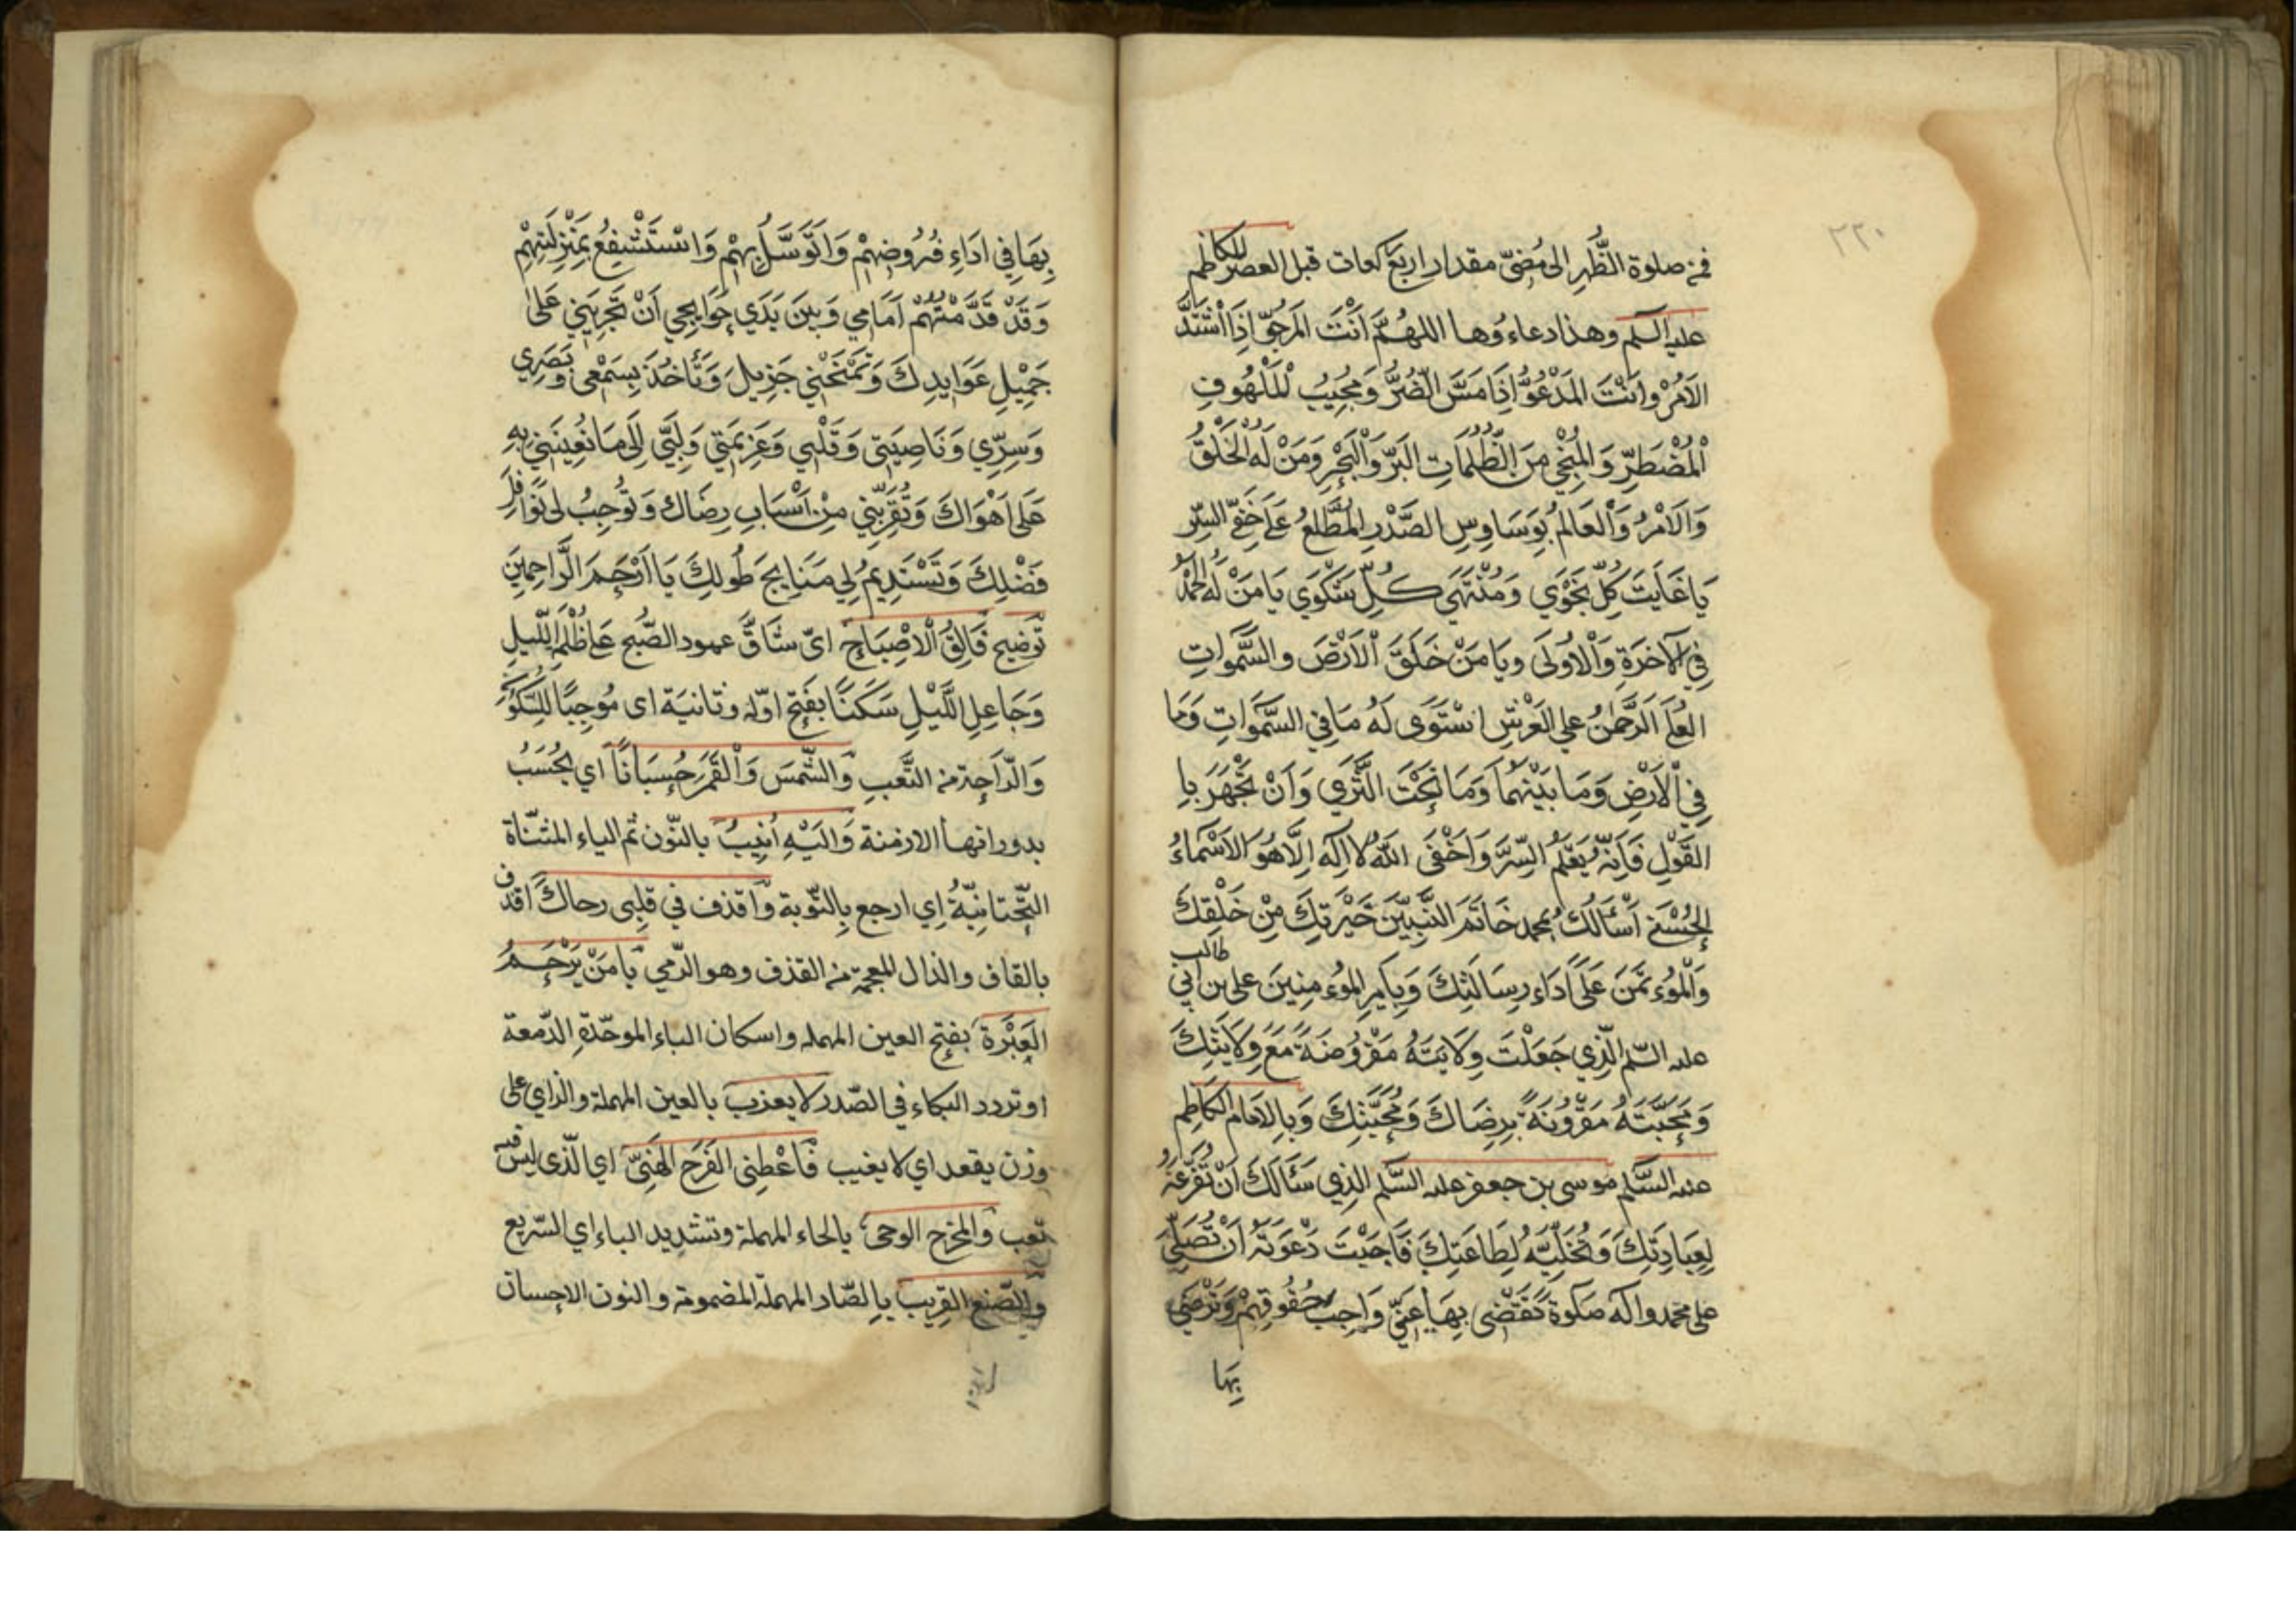 ٢٢٠
فمن صلوة الظُّهرِ الى مُضىّ مقدار اربع ركعات قبل العصر للكاظم
عليه السلم وهذا دعاءُوها اللهُمَّ اَنْتَ المَرجُوّ اِذَا اشْتَدَّ
الاَمْرُ وَاَنْتَ المَدْعُوُّ اِذَا مَسَّ الضُّرُّ وَمُجِيبُ الْمَلْهُوفِ
الْمُضْطَرِّ وَالمُنْجِي مِنَ الظُّلُمَاتِ البَرِّ وَالْبَحْرِ وَمَنْ لَهُ الْخَلْقُ
وَالاَمْرُ وَالْعَالِمُ بِوَسَاوِسِ الصَّدْرِ المُطَّلِعُ عَلَى خَفِىّ السِّرّ
يَا غَايَتَ كُلِّ نَجْوَي وَمُنْتَهَى كُلِّ شَكْوَي يَا مَنْ لَهُ الحَمْدُ
فِي الآخِرَةِ وَالْاُولَى وَيَا مَنْ خَلَقَ الْاَرْضَ وَالسَّموَاتِ
العُلَى الرَّحْمنُ عَلى العَرْشِ اسْتَوَى لَهُ مَا فِي السَّمَوَاتِ وَمَا
فِي الْاَرْضِ وَمَا بَيْنَهُمَا وَمَا تَحْتَ الثَّرَي وَاَنْ تَجْهَرَ بِا
القَوْلِ فَاِنَّهُ يَعْلَمُ السِّرَّ وَاَخْفَى اللّهُ لا اِلَه اِلاَّ هُوَ الاَسْمَاءُ
الحُسْنَى اَسْأَلُكَ بمحمد خَاتَمَ النَّبِيِّينَ خَيْرَتِكَ مِنْ خَلْقِكَ
وَالْمُؤْتَمَنَ عَلَى اَدَاءِ رِسَالَتِكَ وَبِاَمِيرِ المُؤمِنِينَ على بن ابي طالب
عليه السّلم الَّذِي جَعَلْتَ وِلَايَتَهُ مَفْرُوضَةً مَعَ وِلَايَتِكَ
وَمَحَبَّتَهُ مَقْرُونَةً بِرِضَاكَ وَمَحَبَّتِكَ وَبِالاِمَامِ الكَاظِمِ
عليه السَّلم موسى بن جعفر عليه السَّلم الذِي سَئَالَكَ اَنْ تُفَرِّغَهُ
لِعِبَادِتَكَ وَتُخَلِّيَهُ لِطَاعَتِكَ فَاَجَبْتَ دَعْوَتَهُ اَنْ تُصَلِّىَ
على محمد واله صَلوةً تَقْضِى بِهَا عَنِّي وَاجِبَ حُقُوقِهِمْ وَتَرْضَى
بِهَا
بِهَا فِي اَدَاءِ فُرُوضِهِمْ وَاَتَوَسَّلُ بِهِمْ وَاسْتَشْفِعُ بِمَنْزِلَتِهِمْ
وَقَدْ قَدَّمْتُهُمْ اَمَامِي وَبَيْنَ يَدَي حَوَايِجِي اَنْ تُجْرِيَنِي عَلَى
جَمِيْلِ عَوَايِدِكَ وَتَمْنَحَنِي جَزِيلَ وَتَأخُذَ بِسَمْعِى وَبَصَرِي
وَسِرِّي وَنَاصِيَتِى وَقَلْبِي وَعَزِيمَتِي وَلُبِّى اِلَى مَا تُعِينَنِي بِهِ
عَلَى اَهْوَاكَ وَتُقَرِّبَنِي مِنْ اَسْبَابِ رِضَاكَ وَتُوجِبُ لى نَوَافِلَ
فَضْلِكَ وَتَسْتَدِيمُ لِي مَنَايِحَ طُولِكَ يَا اَرْحَمَ الرَّاحِمِيَنَ
تَوضيح فَالِقُ الْاِصْبَاحِ اىّ شَاقَّ عمود الصّبح عن ظلمة اللّيلِ
وَجَاعِلِ اللَّيْلِ سَكَنًا بفَتحِ اوّله وثانيَة اى مُوجِبًا للسّكون
وَالرّاحِة من التَّعَبِ وَالشَّمسَ وَالْقَمَرَ حُسبَانًا اي يُحْسَبُ
بدورانها الازمنة وَالَيْهِ اُنِيبُ بالنّون ثم الياء المثنّاة
التّحتانِيّةُ اِي ارجع بِالتّوبة وَاقذف في قلِبى رحاكَ اقذف
بالقاف والذال المعجمة من القذف وهو الرّمي يَا مَنْ يَرْحَمُ
العَبْرَةَ بفتح العين المهمله واسكان الباء الموحّدةِ الدّمعة
او تردد البكاء في الصّدر لا يعزب بالعين المهملة والزاي على
وزن يقعد اي لا يغيب فَاعْطِنى الفَرَح الهَنِىَّ اي الّذى ليس فيه
تعب والمخرج الوحى بالحاء المهملة وتشديد الياء اي السّريع
والصّنع القريب بِالصّاد المهملة المضمومة والنون الاحسان